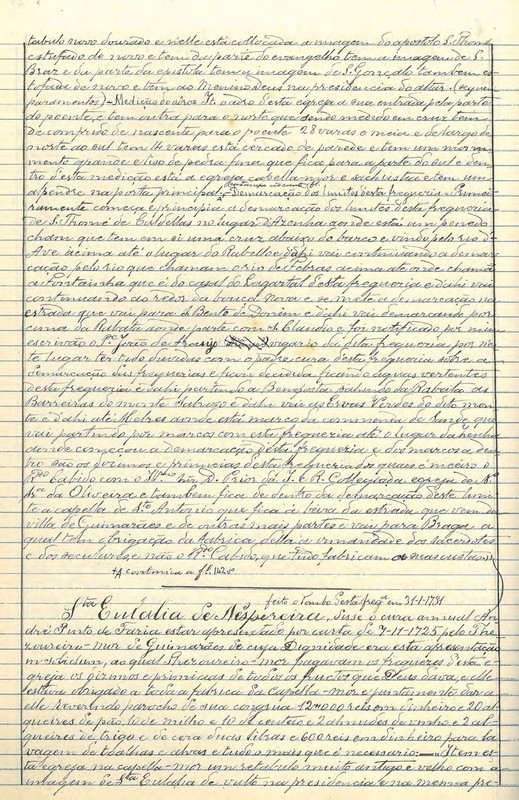 tabulo novo dourado e nelle está collocada a imagem do apostolo S. Thomé
estufado de novo e tem da parte do evangelho tem a imagem de S.
Braz e da parte da epistola tem a imagem de S. Gonçalo tambem es-
tofada de novo e tem ao Menino Deus na presidencia do altar. (seguem
paramentos) — Medição do adro. It. o adro d'esta egreja a sua entrada pela parte
do poente, e tem outra para o norte que sendo medido em cruz tem
de comprido de nascente para o poente 28 varas e meia e de largo do
norte ao sul tem 14 varas está cercado de parede e tem um
mento grande e liso de pedra fina que fica para a parte do sul e den-
tro d'esta medição está a egreja capella mór e sachristia e tem um
alpendre na porta principal. Demarcação dos limites desta freguezia. Primei-
ramente começa e principia a demarcação dos limites d'esta freguezia
de S. Thomé de Caldellas no lugar d'Azenha aonde está um penedo
cham que tem em si uma cruz abaixo do barco e vindo pelo rio d'
Ave acima até o lugar do Rabello e d'ahi vai continuando a demar-
cação pelo rio que chamam o rio de Febras acima até onde chamã
a Fontainha que é do casal do Lagartal d'esta freguezia e d'ahi vai
continuando ao redor da bouça Nova e se mete a demarcação na
estrada que vai para S. Bento de Donim e d'ahi vai demarcando por
cima da Rabata aonde parte com S. Claudio e foi notificado por mim
escrivão o P.e João de Araujo vigario da dita freguezia por nes-
te lugar ter tido duvidas com o padre cura desta freguezia sobre a
demarcação das freguezias e ficou decidida ficando aguas vertentes
desta freguezia e d'ahi partindo a Benposta sahindo da Rabata as
Barreiras do monte Sabroso e d'ahi vai as Ervas Verdes do dito mon-
te e d'ahi até Helres aonde está marco da commenda de Sande que
vai partindo por marcos com esta freguezia até o lugar da Azenha
donde começou a demarcação d'esta freguezia e dos marcos a den-
tro são os dizimos e primicias d'esta freguezia dos quaes é inteiro o
R.mo Cabido com o Ill.mo Snr. D. Prior da I. e R. Collegiada egreja de N.
Sr.a da Oliveira e tambem fica de dentro da demarcação deste limi-
te a capella de S.to Antonio que fica á beira da estrada que vem da
villa de Guimarães e de outras mais partes e vai para Braga a
qual tem obrigação da fabrica, della a irmandade dos sacerdotes
e dos seculares e não o R.mo Cabido, que tudo fabricam a suas custas.
+A continua a fl. 142v
S.ta Eulalia de Nespereira, feito o Tombo Desta freg.a em 31-1-1731 Disse o cura annual An-
dré Pinto de Faria estar apresentado por carta de 7-11-1725 pelo The-
zoureiro-mor de Guimarães de cuja Dignidade era esta apresentação
in solidum, ao qual Thezoureiro-mor pagavam os freguezes d'esta e-
greja os dizimos e primicias de todos os fructos que Deus dava, e elle
estava obrigado a toda a fabrica da Capella-mor e juntamente dar a
elle reverendo parocho de sua congrua 12$000 reis em dinheiro e 20 al-
queires de pão, 10 de milho e 10 de centeio e 2 almudes de vinho e 2 al-
queires de trigo e de cera duas libras e 600 reis em dinheiro para la-
vagem de toalhas e alvas e tudo o mais que é necessario. — "Item es-
ta egreja na capella-mor um retabulo muito antigo e velho com a
imagem de S.ta Eulalia de vulto na presidencia e na mesma pre-